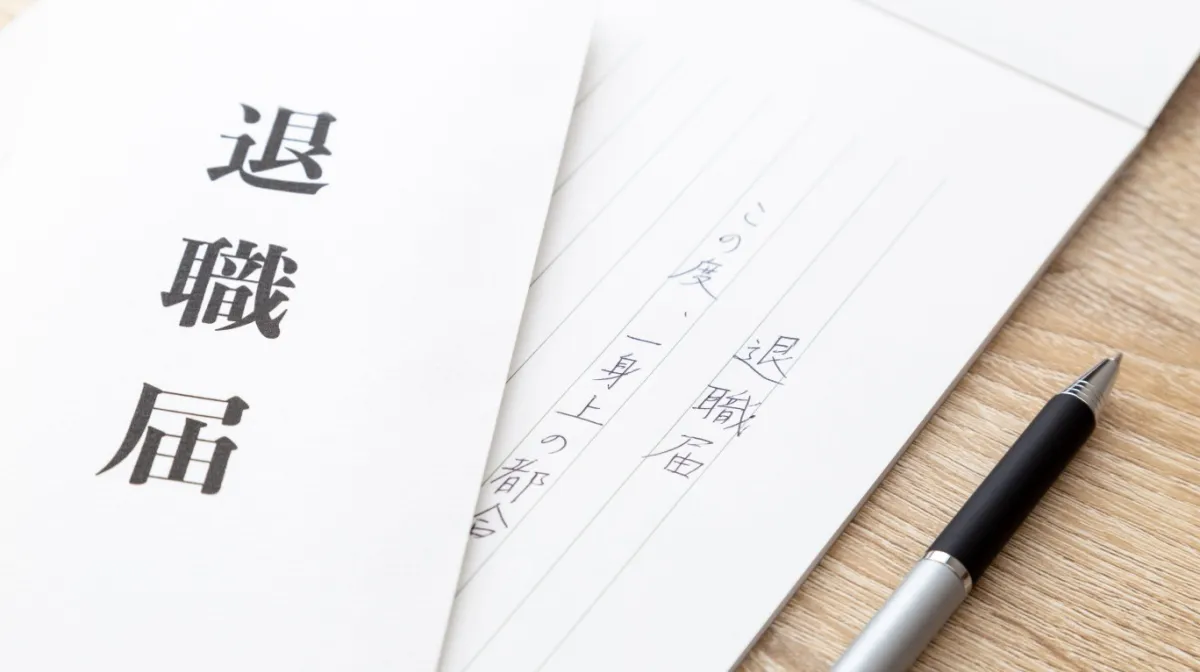 退職届
退職届
この度、一身上の都合